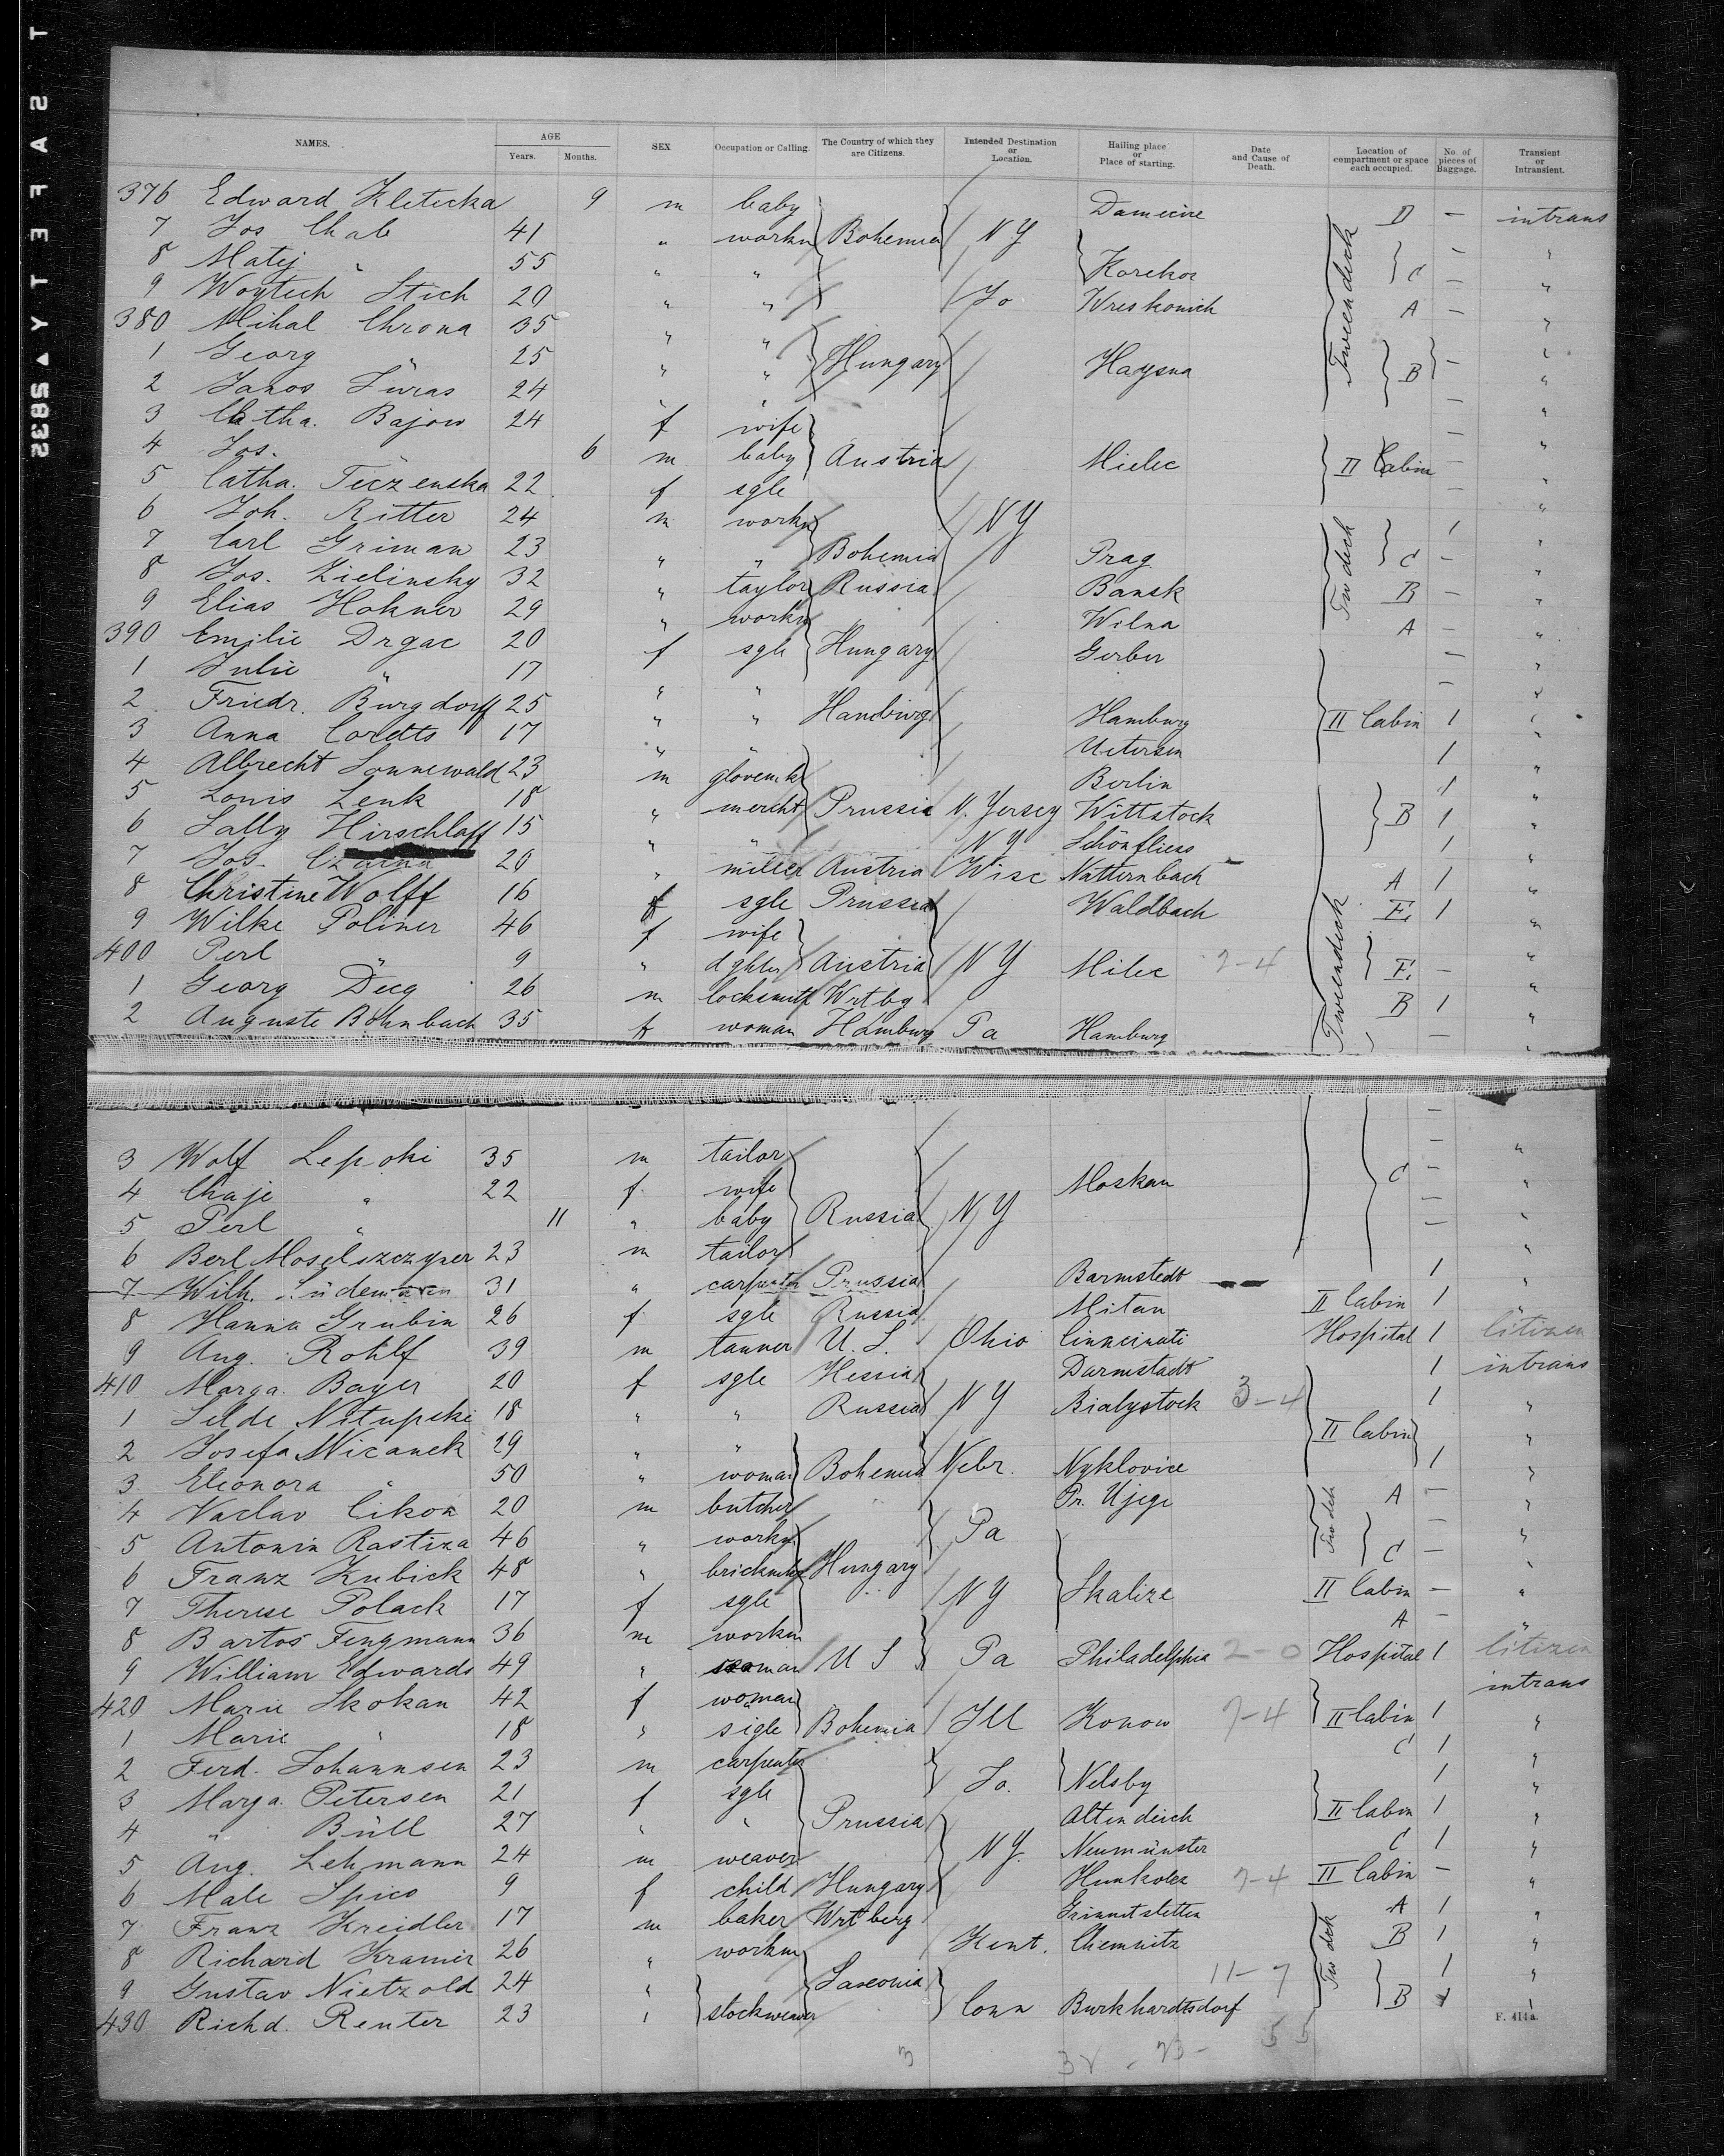 SAFETY ▲ 5832
NAMES. AGE Years. Months. SEX Occupation or Calling. The Country of which they are Citizens. Intended Destination or Location. Hailing place or Place of starting. Date and Cause of Death. Location of compartment or space each occupied. No. of pieces of Baggage. Transient or Intransient.
376 Edward Kletecka 9 m baby D — intrans
7 Jos 41 " workm Bohemia N.Y. — "
8 Matej " 55 " " C — "
9 Woytech Stich 20 " " Jo Wreskowich Tweendeck A — "
380 Mihal Chrona 35 " " "
1 Georg " 25 " " Hungary Haysna B — "
2 Janos Juras 24 " " — "
3 Catha. Bajow 24 f wife — "
4 Jos. 6 m baby Austria Mielec II Cabin — "
5 Catha. 22 f sgle — "
6 Joh. Ritter 24 m workm NY 1 "
7 Carl Griman 23 " " Bohemia Prag Tw deck C — "
8 Jos. Zielinsky 32 " taylor Russia Bansk B — "
9 Elias Hokner 29 " workm Wilna A — "
390 Emilie Drgac 20 f sgle Hungary Gerber — "
1 Julie " 17 " " — "
2 Friedr. Burgdorff 25 " " Hamburg Hamburg II Cabin 1 "
3 Anna Cordts 17 " Uetersen 1 "
4 Albrecht Sonnewald 23 m glovemk Berlin 1 "
5 Louis Lenk 18 " mercht Prussia N. Jersey Wittstock B 1 "
6 Sally Hirschlaff 15 " " NY Schönfliess 1 "
7 Jos. 20 " miller Austria Wisc Natternbach A 1 "
8 Christine Wolff 16 f sgle Prussia Waldbach E. 1 "
9 Wilke Poliner 46 f wife Tweendeck "
400 Perl " 9 " dghter Austria NY Milec 7-4 F. — "
1 Georg Deeg 26 m locksmith Wrtbg B 1 "
2 Auguste Bohnbach 35 f woman Hamburg Pa Hamburg — "
3 Wolf 35 m tailor — "
4 Chaje " 22 f wife Moskau C — "
5 Perl " 11 " baby Russia NY — "
6 Berl 23 m tailor "
7 Wilh. 31 " carpenter Prussia Barmstedt 1 "
8 Hanna Grubin 26 f sgle Russia Mitau II Cabin 1 "
9 Aug. Rohlf 39 m tanner U.S. Ohio Cinncinati Hospital 1 Citizen
410 Marga. Bayer 20 f sgle Hessia Darmstadt 1 intrans
1 18 " " Russia NY Bialystock 3-4 1 "
2 Josefa 29 " " II Cabin "
3 Eleonora " 50 " woman Bohemia Nebr. Nyklovice 1 "
4 Vaclav Cikon 20 m butcher Pr. Ujezi A — "
5 Antonin Rastiza 46 " workm Pa Tw dek — "
6 Franz Kubick 48 " brickmkr Hungary C — "
7 Therese Polack 17 f sgle NY Skalize II Cabin — "
8 Bartos Fengmann 36 m workm A — "
9 William Edwards 49 " seaman U S Pa Philadelphia 2-0 Hospital 1 Citizen
420 Marie Skokan 42 f woman intrans
1 Marie " 18 " sigle Bohemia Ill Konow 7-4 II Cabin 1 "
2 Ferd. Johannsen 23 m carpenter C 1 "
3 Marga. Petersen 21 f sgle Jo. Nelsby 1 "
4 " Büll 27 " " Prussia Altendeich II Cabin 1 "
5 Aug. Lehmann 24 m weaver NY. Neumünster C 1 "
6 Male Spico 9 f child Hungary 7-4 II Cabin — "
7 Franz Kreidler 17 m baker Wrtberg A 1 "
8 Richard Kramer 26 " workm Kent. Chemnitz Tw dek B 1 "
9 Gustav Nietzold 24 " Saxonia 11-7 1 "
430 Richd. Renter 23 " stockweaver Conn Burkhardtsdorf B 1 "
F. 414a.
55
3